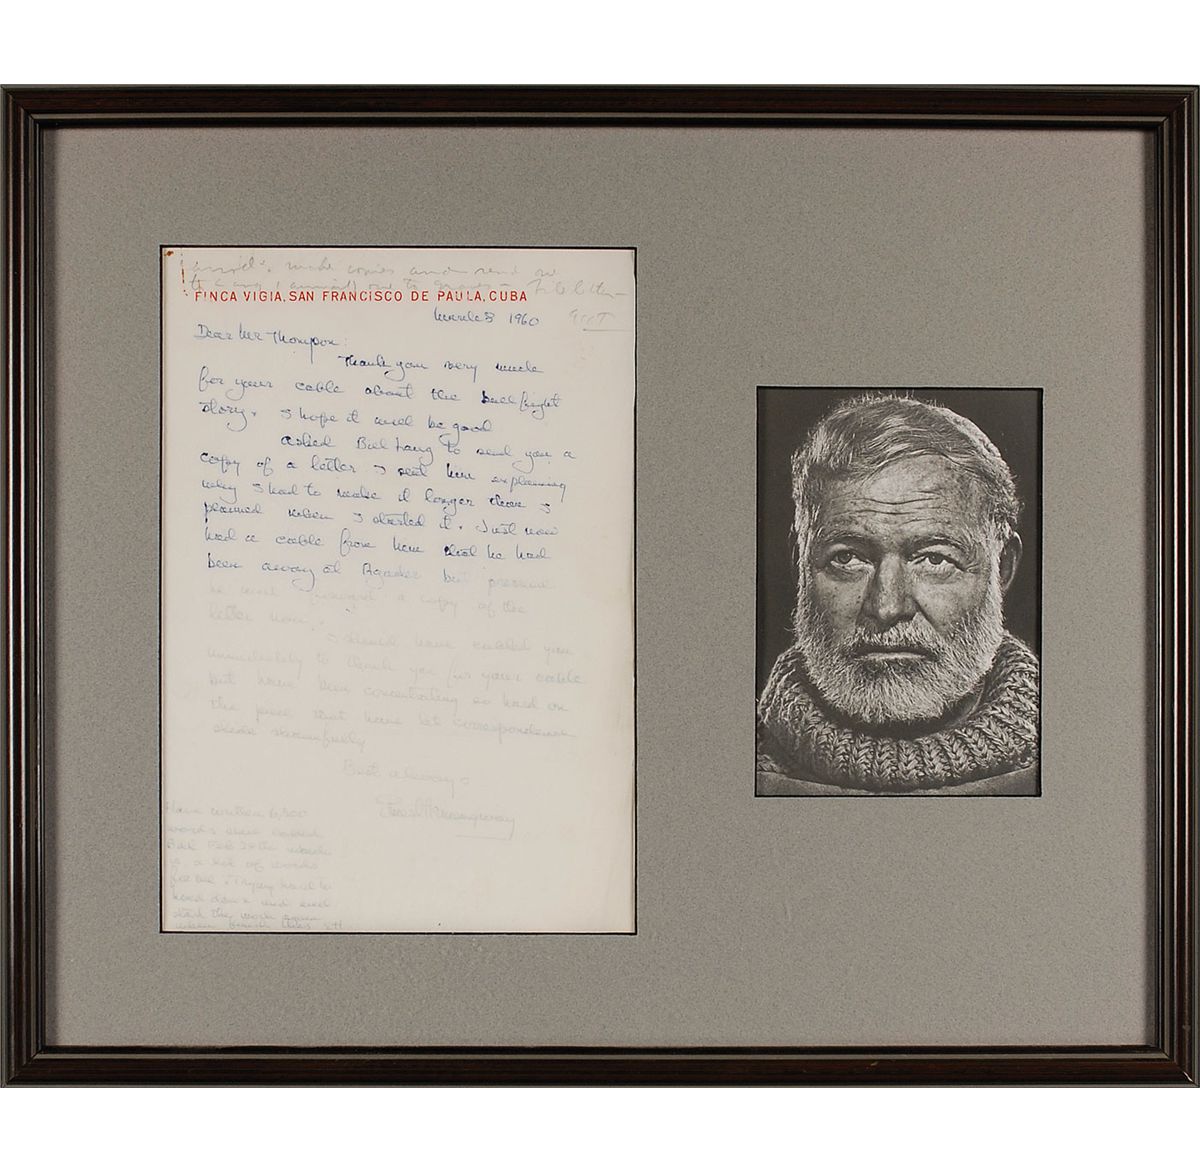 make copies and send one
FINCA VIGIA, SAN FRANCISCO DE PAULA, CUBA
March 8 1960
Dear Mr Thompson:
Thank you very much
for your cable about the bull fight
story. I hope it will be good
asked Bill Lang to send you a
copy of a letter I sent him explaining
why I had to make it longer than I
planned when I started it. Just now
had a cable from him that he had
been away at Agadir but presume
he will forward a copy of the
letter now.
I should have cabled you
immediately to thank you for your cable
but have been concentrating so hard on
the piece that have let correspondence
slide shamefully
Best always
Ernest Hemingway
Have written 6,300
words since cabled
Bill Feb
is a lot of words
for me. Trying hard to
hold down and
start the work again
when finish this EH